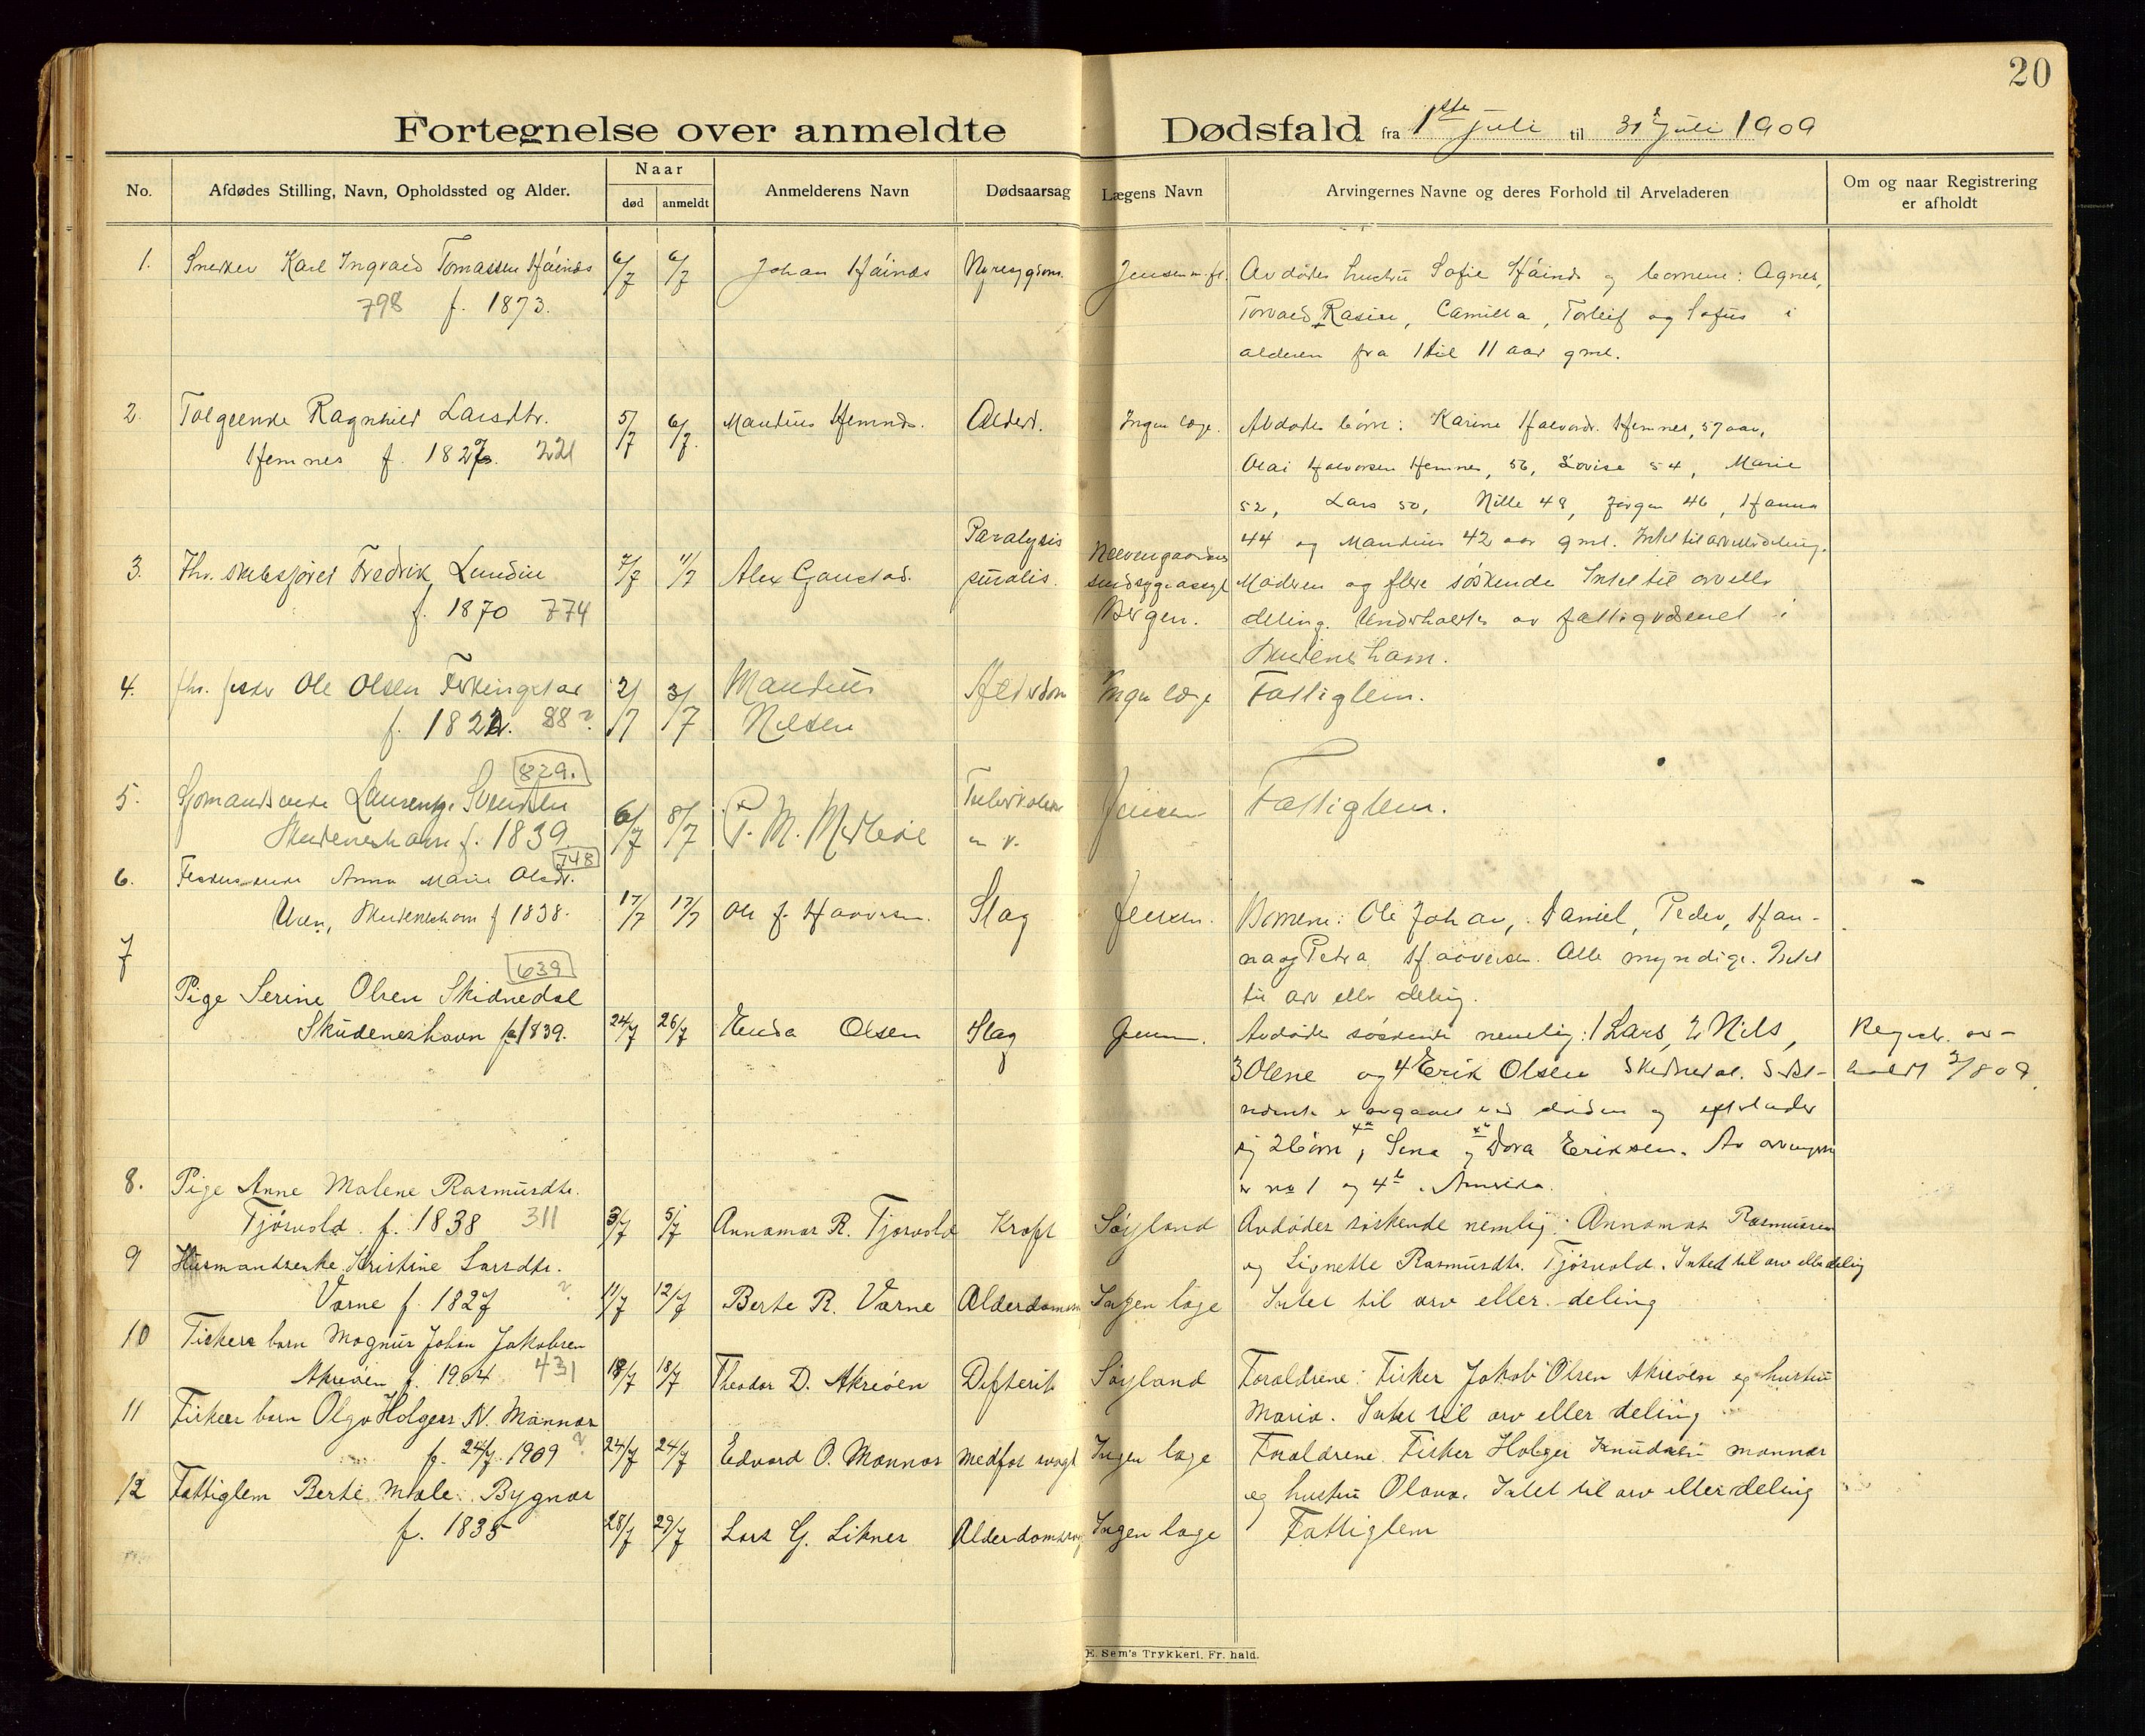 20
Fortegnelse over anmeldte Dødsfald fra 1ste juli til 31 juli 1909
No. Afdødes Stilling, Navn, Opholdssted og Alder. Naar død anmeldt Anmelderens Navn Dødsaarsag Lægens Navn Arvingernes Navne og deres Forhold til Arveladeren Om og naar Registrering er afholdt
1. Snekker Karl Ingvald Tomassen Háinds 6/7 6/7 Johan Háinds Jensen Avdødes hustru Sofie Háinds og børnene: Agnes,
798 f. 1873. Torvald, Rasine, Camilla, Torleif og Sofus i
alderen fra 1 til 11 aar gml.
2. Ragnhild Larsdtr. 5/7 6/7 Mandius Hemnes. Alderd. Ingen læge. Avdødes børn: Karine Halvords. Hemnes, 57 aar,
Hemnes f. 1827. 221 Olai Halvorsen Hemnes, 56, Lovise 54, Marie
52, Lars 50, Nille 48, Jørgen 46, Hanna
44 og Mandius 42 aar gml. Intet til arv eller deling.
3. Fhv. skibsfører Fredrik Lundin 7/7 11/7 Alex Gaustad. Paralysis Neevengaardens Moderen og flere søskende Intet til arv eller
f. 1870 774 sindsygeasyl Bergen. deling. Underholdtes av fattigvæsenet i
Skudeneshavn.
4. fhv. fisker Ole Olsen Ferkingstad 2/7 3/7 Mandius Nilsen Alderdom Ingen læge Fattiglem.
f. 1822. 88 ?
829.
5. Sjømandsenke Svendsen 6/7 8/7 Jensen Fattiglem.
Skudeneshavn f. 1839.
748
6. Fiskerenke Anna Marie Olsdr.
Skudeneshavn f 1838. 17/7 17/7 Ole J. Haaversen. Slag Jensen. Børnene: Ole Johan, Daniel, Peder, Han-
na og Petra Haaversen. Alle myndige. Intet
til arv eller deling.
7 639
Pige Serine Olsen Skidnedal
Skudeneshavn f 1839. 24/7 26/7 Enda Olsen Slag Jensen. Avdødes søskende nemlig: 1 Lars, 2 Nils, Registr. av-
3 Olene og 4 Erik Olsen Skidnedal. Sidst- holdt
nævnte er avgaaet ved døden og efterlader
sig 2 børn, Sena og Dora Eriksen. Av arvingene
er no 1 og 4 i Amerika.
8. Pige Anne Malene Rasmusdtr.
Tjøsvold. f. 1838 311 3/7 5/7 Annamar R. Tjøsvold Kræft Søyland Avdødes søskende nemlig: Annamar Rasmussen
og Lignette Rasmusdtr. Tjøsvold. Intet til arv eller deling
9 Husmandsenke Kristine Larsdtr.
Varne f. 1827 ? 11/7 12/7 Berte R. Varne Alderdomssv Ingen læge Intet til arv eller deling
10 Fiskers barn Magnus Johan Jakobsen
Akreøen f. 1904 431 18/7 18/7 Theodor D. Akreøen Difterit Søyland Forældrene: Fisker Jakob Olsen Akreøen og hustru
Maria. Intet til arv eller deling
11 Fiskers barn Olga Holgers N. Mannes
f. 24/7 1909 ? 24/7 24/7 Edvard O. Mannes medfød svagh Ingen læge Forældrene Fisker Holger Knudsen Mannes
og hustru Olava. Intet til arv eller deling
12 Fattiglem Berte Male Bygnes
f. 1835 28/7 29/7 Lars G. Liknes Alderdomssvag Ingen læge Fattiglem
E. Sem's Trykkeri. Fr. hald.